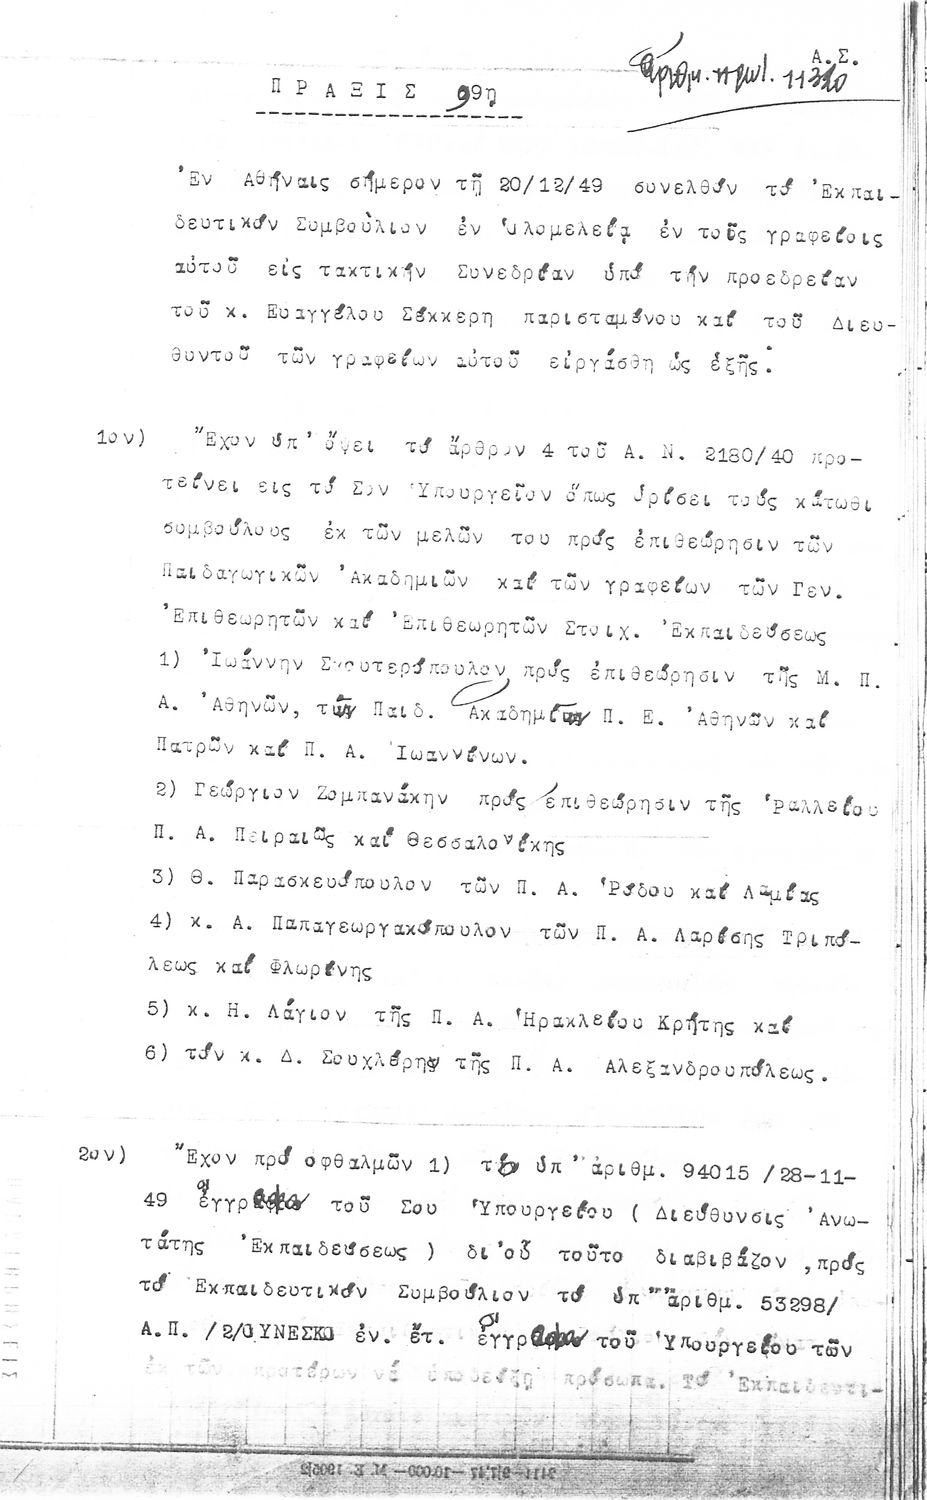 Α.Σ.
Αριθμ. πρωτ. 11320
ΠΡΑΞΙΣ 99η
Ἐν Ἀθήναις σήμερον τῇ 20/12/49 συνελθόν τό Ἐκπαι-
δευτικόν Συμβούλιον ἐν ὁλομελείᾳ ἐν τοῖς γραφείοις
αὐτοῦ εἰς τακτικήν Συνεδρίαν ὑπό τήν προεδρείαν
τοῦ κ. Εὐαγγέλου Σέκκερη παρισταμένου καί τοῦ Διευ-
θυντοῦ τῶν γραφείων αὐτοῦ εἰργάσθη ὡς ἑξῆς:
1ον) Ἔχον ὑπ' ὄψει τό ἄρθρον 4 τοῦ Α. Ν. 2180/40 προ-
τείνει εις τό Σον Ὑπουργεῖον ὅπως ὁρίσει τούς κάτωθι
συμβούλους ἐκ τῶν μελῶν του πρός ἐπιθεώρησιν τῶν
Παιδαγωγικῶν Ἀκαδημιῶν καί τῶν γραφείων τῶν Γεν.
Ἐπιθεωρητῶν καί Ἐπιθεωρητῶν Στοιχ. Ἐκπαιδεύσεως
1) Ἰωάννην Σκουτερόπουλον πρός ἐπιθεώρησιν τῆς Μ. Π.
Α. Ἀθηνῶν, τῆς Παιδ. Ἀκαδημίας Π. Ε. Ἀθηνῶν καί
Πατρῶν καί Π. Α. Ἰωαννίνων.
2) Γεώργιον Ζομπανάκην πρός ἐπιθεώρησιν τῆς Ῥαλλείου
Π. Α. Πειραιῶς καί Θεσσαλονίκης
3) Θ. Παρασκευόπουλον τῶν Π. Α. Ῥόδου καί Λαμίας
4) κ. Α. Παπαγεωργακόπουλον τῶν Π. Α. Λαρίσης Τριπό-
λεως καί Φλωρίνης
5) κ. Η. Λάγιον τῆς Π. Α. Ἡρακλείου Κρήτης καί
6) τόν κ. Δ. Σουχλέρην τῆς Π. Α. Αλεξανδρουπόλεως.
2ον) Ἔχον πρό οφθαλμῶν 1) τό ὑπ' ἀριθμ. 94015 /28-11-
49 ἔγγραφον τοῦ Σου Ὑπουργείου ( Διεύθυνσις Ἀνω-
τάτης Ἐκπαιδεύσεως ) δι' οὗ τοῦτο διαβιβάζον ,πρός
τό Ἐκπαιδευτικόν Συμβούλιον τό ὑπ' ἀριθμ. 53298/
Α.Π. /2/ΟΥΝΕΣΚΟ ἐν. ἔτ. ἔγγραφον τοῦ Ὑπουργείου τῶν
ἐκ τῶν προτέρων νά ὑποδείξῃ πρόσωπα. Τό Ἐκπαιδευτι-